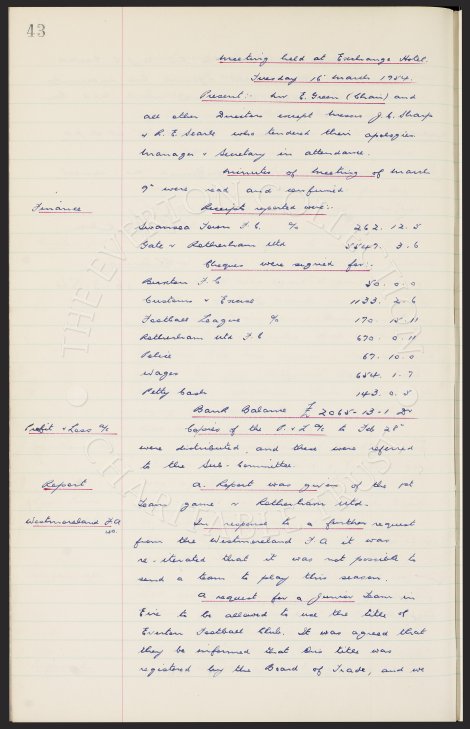 43
Meeting held at Exchange Hotel
Tuesday 16 March 1954.
Present:- Mr E. Green (Chair) and
all other Directors except Messrs J. C. Sharp
& R. E. Searle who tendered their apologies.
Manager & Secretary in attendance.
Minutes of Meeting of March
9th were read and confirmed.
Finance
Receipts reported were:-
Swansea Town F.C. % 262. 12. 5
Gate v Rotherham Utd 5547. 3. 6
Cheques were signed for:-
Buxton F.C 50. 0. 0
Customs & Excise 1133. 2. 6
Football League % 170. 15. 11
Rotherham Utd F.C 670. 0. 11
Police 67. 10. 0
Wages 654. 1. 7
Petty Cash 143. 0. 5
Bank Balance £ 2065-13-1 Dr
Profit & Loss a/c
Copies of the P. & L a/c to Feb 28th
were distributed, and these were referred
to the Sub-Committee.
Report
A Report was given of the 1st
Team game v Rotherham Utd.
Westmoreland F.A
In response to a further request
from the Westmoreland F A it was
re-iterated that it was not possible to
send a team to play this season.
A request for a Junior Team in
Eire to be allowed to use the title of
Everton Football Club. It was agreed that
they be informed that this title was
registered by the Board of Trade, and we
THE EVERTON COLLECTION
CHARITABLE TRUST